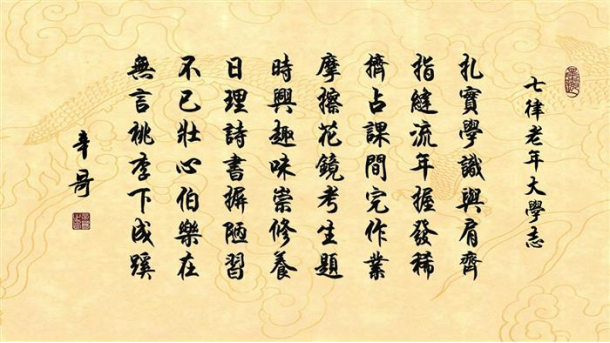 七律老年大學志
扎實學識與肩齊
指縫流年握發稀
擠占課間完作業
摩擦花鏡考生題
時興趣味崇修養
日理詩書摒陋習
不已壯心伯樂在
無言桃李下成蹊
辛哥